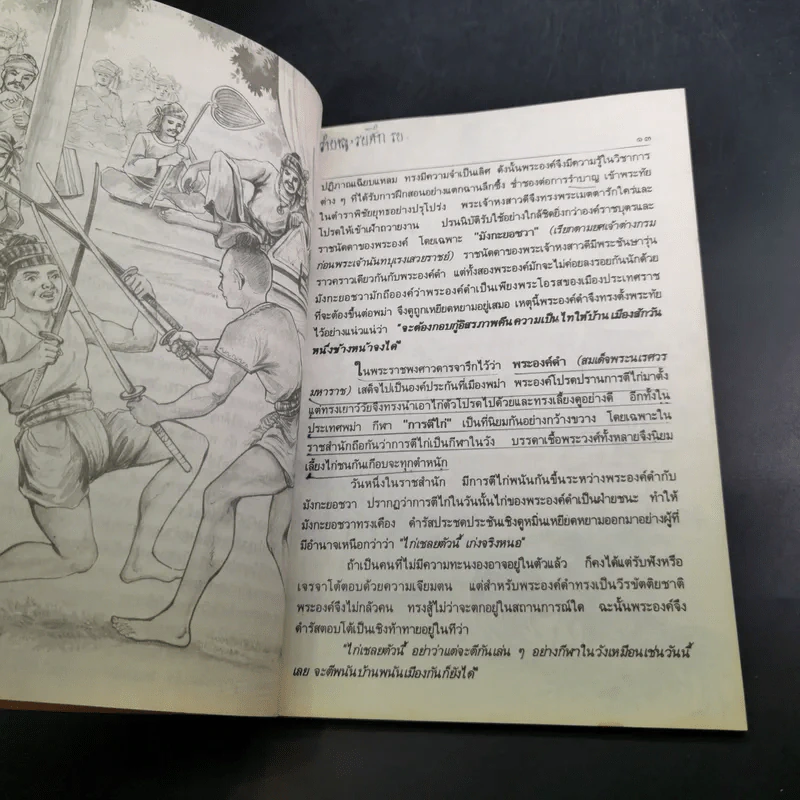 ๑๓
ปฏิภาณเฉียบแหลม ทรงมีความจำเป็นเลิศ ดังนั้นพระองค์จึงมีความรู้ในวิชาการ
ต่าง ๆ ที่ได้รับการฝึกสอนอย่างแตกฉานลึกซึ้ง ช่ำชองต่อการรำบาญ เข้าพระทัย
ในตำราพิชัยยุทธอย่างปรุโปร่ง พระเจ้าหงสาวดีจึงทรงพระเมตตารักใคร่และ
โปรดให้เข้าเฝ้าถวายงาน ปรนนิบัติรับใช้อย่างใกล้ชิดยิ่งกว่าองค์ราชบุตรและ
ราชนัดดาของพระองค์ โดยเฉพาะ "มังกะยอชวา" (เรียกตามยศเจ้าต่างกรม
ก่อนพระเจ้านันทบุเรงเสวยราชย์) ราชนัดดาของพระเจ้าหงสาวดีมีพระชันษารุ่น
ราวคราวเดียวกันกับพระองค์ดำ แต่ทั้งสองพระองค์มักจะไม่ค่อยลงรอยกันนักด้วย
มังกะยอชวามักถือองค์ว่าพระองค์ดำเป็นเพียงพระโอรสของเมืองประเทศราช
ที่จะต้องขึ้นต่อพม่า จึงดูถูกเหยียดหยามอยู่เสมอ เหตุนี้พระองค์ดำจึงทรงตั้งพระทัย
ไว้อย่างแน่วแน่ว่า "จะต้องกอบกู้อิสรภาพคืนความเป็นไทให้บ้านเมืองสักวัน
หนึ่งข้างหน้าจงได้"
ในพระราชพงศาวดารจารึกไว้ว่า พระองค์ดำ (สมเด็จพระนเรศวร
มหาราช) เสด็จไปเป็นองค์ประกันที่เมืองพม่า พระองค์โปรดปรานการตีไก่มาตั้ง
แต่ทรงเยาว์วัยจึงทรงนำเอาไก่ตัวโปรดไปด้วยและทรงเลี้ยงดูอย่างดี อีกทั้งใน
ประเทศพม่า กีฬา "การตีไก่" เป็นที่นิยมกันอย่างกว้างขวาง โดยเฉพาะใน
ราชสำนักถือกันว่าการตีไก่เป็นกีฬาในวัง บรรดาเชื้อพระวงศ์ทั้งหลายจึงนิยม
เลี้ยงไก่ชนกันเกือบจะทุกตำหนัก
วันหนึ่งในราชสำนัก มีการตีไก่พนันกันขึ้นระหว่างพระองค์ดำกับ
มังกะยอชวา ปรากฏว่าการตีไก่ในวันนั้นไก่ของพระองค์ดำเป็นฝ่ายชนะ ทำให้
มังกะยอชวาทรงเคือง ดำรัสประชดประชันเชิงดูหมิ่นเหยียดหยามออกมาอย่างผู้ที่
มีอำนาจเหนือกว่าว่า "ไก่เชลยตัวนี้ เก่งจริงหนอ"
ถ้าเป็นคนที่ไม่มีความทะนงองอาจอยู่ในตัวแล้ว ก็คงได้แต่รับฟังหรือ
เจรจาโต้ตอบด้วยความเจียมตน แต่สำหรับพระองค์ดำทรงเป็นวีรขัตติยชาติ
พระองค์จึงไม่กลัวคน ทรงสู้ไม่ว่าจะตกอยู่ในสถานการณ์ใด ฉะนั้นพระองค์จึง
ดำรัสตอบโต้เป็นเชิงท้าทายอยู่ในทีว่า
"ไก่เชลยตัวนี้ อย่าว่าแต่จะตีกันเล่น ๆ อย่างกีฬาในวังเหมือนเช่นวันนี้
เลย จะตีพนันบ้านพนันเมืองกันก็ยังได้"